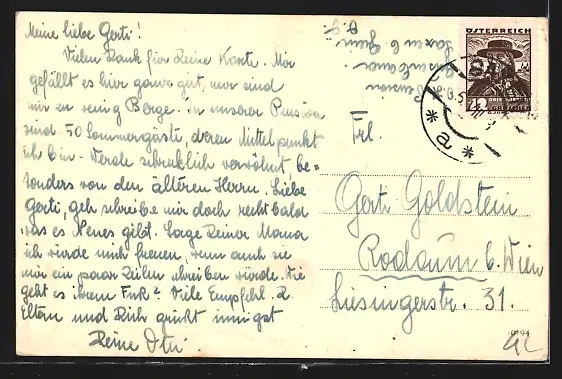 Meine liebe Gerti!
Vielen Dank für Deine Karte. Mir
gefällt es hier ganz gut, nur sind
mir zu wenig Berge. In unserer Pension
sind 50 Sommergäste, deren Mittelpunkt
ich bin. Werde schrecklich verwöhnt, be-
sonders von den älteren Herrn. Liebe
Gerti, geh schreibe mir doch recht bald
was es Neues gibt. Sage Deiner Mama
ich würde mich freuen, wenn auch sie
mir ein paar Zeilen schreiben würde. Wie
geht es ihrem Fuß? Viele Empfehl. D.
Eltern und Dich grüßt innigst
Deine
ÖSTERREICH
12
Frl.
Gerti Goldstein
Rodaun b. Wien
Liesingerstr. 31.